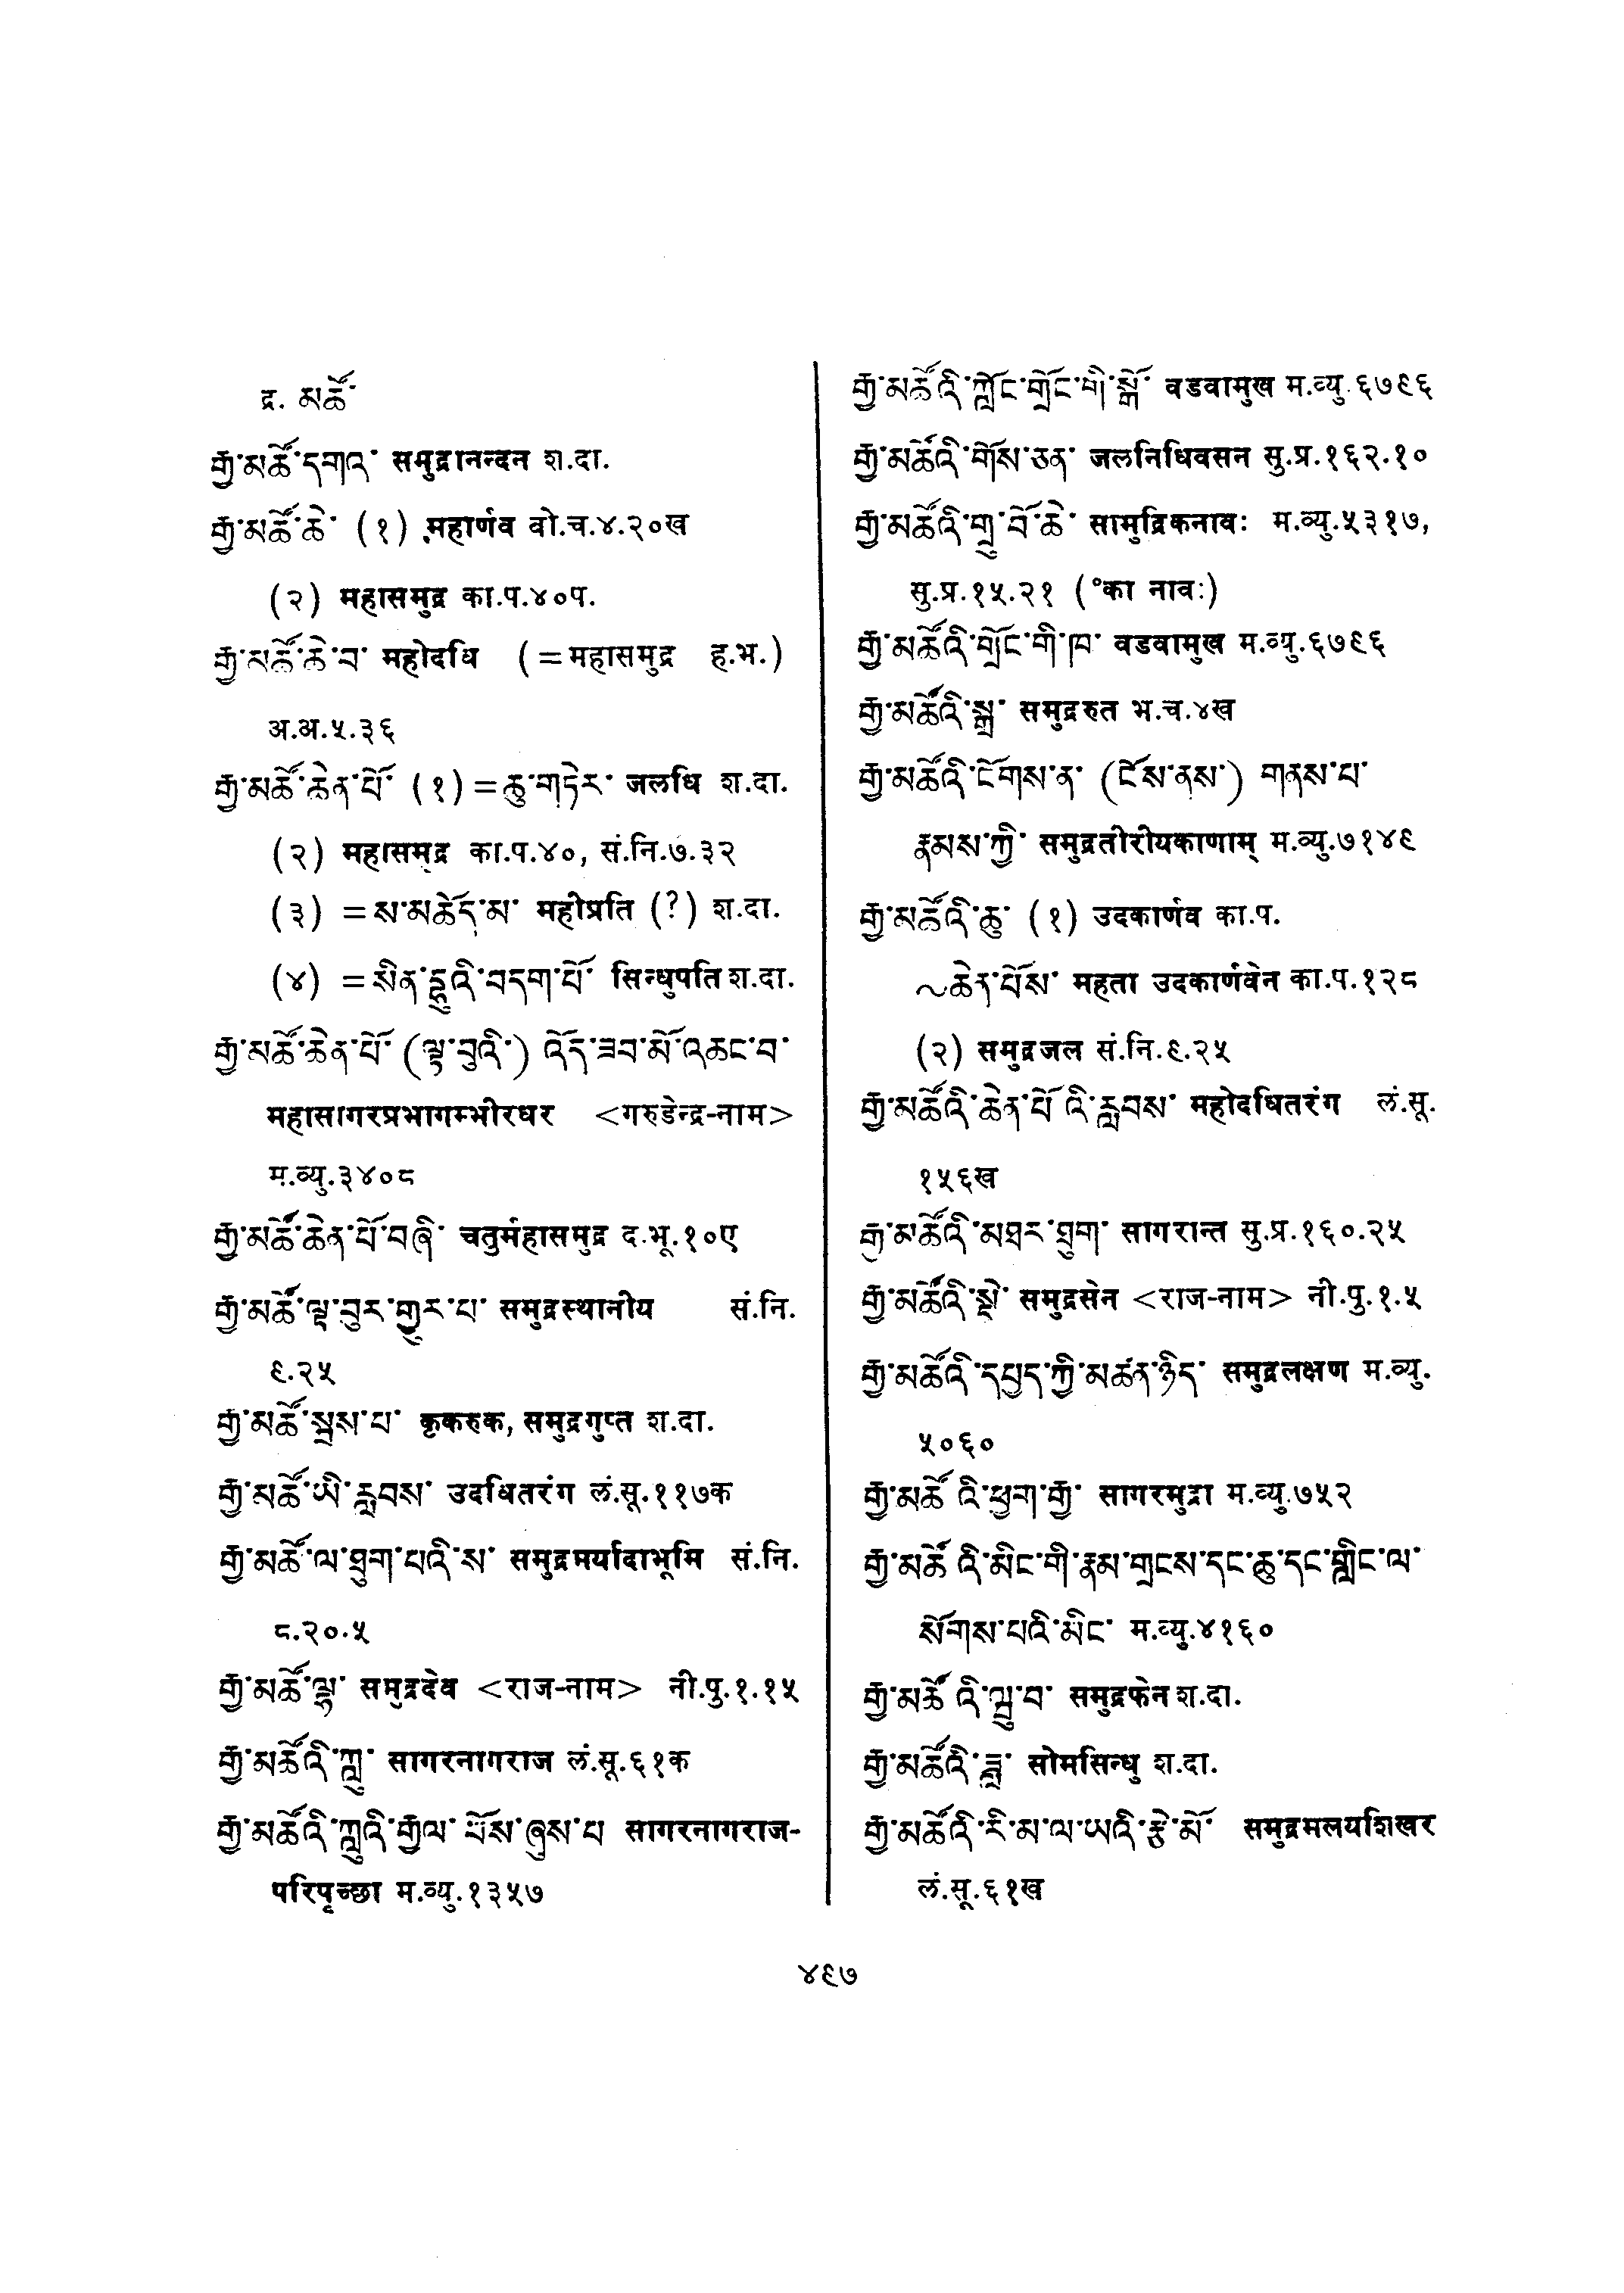 द्र. མཚོ་
རྒྱ་མཚོ་དགའ་ समुद्रानन्दन श.दा.
རྒྱ་མཚོ་ཆེ་ (१) महार्णव वो.च.४.२०ख
(२) महासमुद्र का.प.४०प.
རྒྱ་མཚོ་ཆེ་བ་ महोदधि (=महासमुद्र ह.भ.)
अ.अ.५.३६
རྒྱ་མཚོ་ཆེན་པོ་ (१)=ཆུ་གཏེར་ जलधि श.दा.
(२) महासमुद्र का.प.४०, सं.नि.७.३२
(३) =ས་མཆོད་མ་ महीप्रति (?) श.दा.
(४) =སིན་དྷུའི་བདག་པོ་ सिन्धुपति श.दा.
རྒྱ་མཚོ་ཆེན་པོ་ (ལྟ་བུའི་) འོད་ཟབ་མོ་འཆང་བ་
महासागरप्रभागम्भीरधर <गरुडेन्द्र-नाम>
म.व्यु.३४०८
རྒྱ་མཚོ་ཆེན་པོ་བཞི་ चतुर्महासमुद्र द.भू.१०ए
རྒྱ་མཚོ་ལྟ་བུར་གྱུར་པ་ समुद्रस्थानीय सं.नि.
९.२५
རྒྱ་མཚོ་སྦས་པ་ कृकरुक, समुद्रगुप्त श.दा.
རྒྱ་མཚོ་ཡི་རླབས་ उदधितरंग लं.सू.११७क
རྒྱ་མཚོ་ལ་ཐུག་པའི་ས་ समुद्रमर्यादाभूमि सं.नि.
८.२०.५
རྒྱ་མཚོ་ལྷ་ समुद्रदेव <राज-नाम> नी.पु.१.१५
རྒྱ་མཚོའི་ཀླུ་ सागरनागराज लं.सू.६१क
རྒྱ་མཚོའི་ཀླུའི་རྒྱལ་ པོས་ཞུས་པ सागरनागराज-
परिपृच्छा म.व्यु.१३५७
རྒྱ་མཚོའི་ཀློང་གྲོང་གི་སྒོ་ वडवामुख म.व्यु.६७९६
རྒྱ་མཚོའི་གོས་ཅན་ जलनिधिवसन सु.प्र.१६२.१०
རྒྱ་མཚོའི་གྲུ་བོ་ཆེ་ सामुद्रिकनावः म.व्यु.५३१७,
सु.प्र.१५.२१ (°का नावः)
རྒྱ་མཚོའི་གྲོང་གི་ཁ་ वडवामुख म.व्यु.६७९६
རྒྱ་མཚོའི་སྒྲ་ समुद्ररुत भ.च.४ख
རྒྱ་མཚོའི་ངོགས་ན་ (ངོས་ནས་) གནས་པ་
རྣམས་ཀྱི་ समुद्रतीरीयकाणाम् म.व्यु.७१४९
རྒྱ་མཚོའི་ཆུ་ (१) उदकार्णव का.प.
~ཆེན་པོས་ महता उदकार्णवेन का.प.१२८
(२) समुद्रजल सं.नि.९.२५
རྒྱ་མཚོའི་ཆེན་པོ འི་རླབས་ महोदधितरंग लं.सू.
१५६ख
རྒྱ་མཚོའི་མཐར་ཐུག་ सागरान्त सु.प्र.१६०.२५
རྒྱ་མཚོའི་སྡེ་ समुद्रसेन <राज-नाम> नी.पु.१.५
རྒྱ་མཚོའི་དཔྱད་ཀྱི་མཚན་ཉིད་ समुद्रलक्षण म.व्यु.
५०६०
རྒྱ་མཚོ འི་ཕྱག་རྒྱ་ सागरमुद्रा म.व्यु.७५२
རྒྱ་མཚོ འི་མིང་གི་རྣམ་གྲངས་དང་ཆུ་དང་གླིང་ལ་
སོགས་པའི་མིང་ म.व्यु.४१६०
རྒྱ་མཚོ འི་ལྦུ་བ་ समुद्रफेन श.दा.
རྒྱ་མཚོའི་ཟླ་ सोमसिन्धु श.दा.
རྒྱ་མཚོའི་རི་མ་ལ་ཡའི་རྩེ་མོ་ समुद्रमलयशिखर
लं.सू.६१ख
४९७